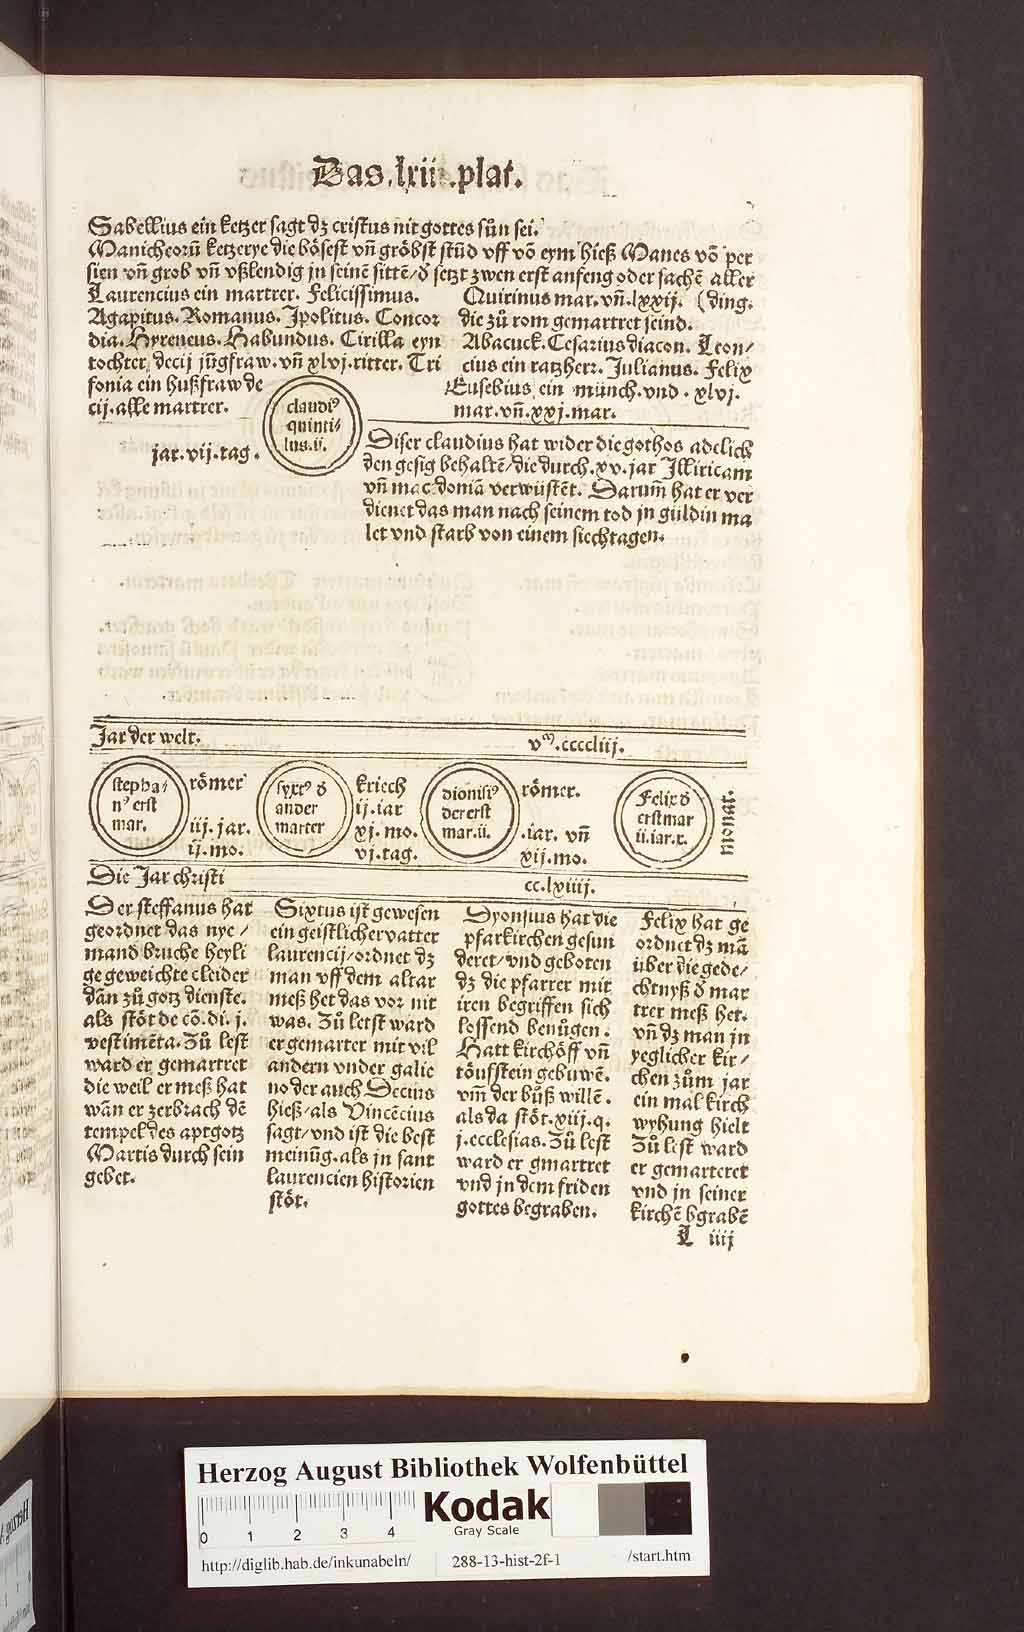 Das .lxiii. plat.
Sabellius ein ketzer sagt dz cristus nit gottes sůn sei.
Manicheorū ketzerye die bösest vn̄ gröbst stūd vff vō eym hieß Manes vō per
sien vn̄ grob vn̄ vßlendig jn seinē sittē/d̕ setzt zwen erst anfeng oder sachē aller
Laurencius ein martrer. Felicissimus.
Agapitus. Romanus. Ipolitus. Concor
dia. Hyreneus. Habundus. Cirilla eyn
tochter decij jūgfraw. vn̄ xlvj. ritter. Tri
fonia ein hußfraw de
cij. alle martrer.
Quirinus mar. vn̄. lxxij. (ding.
die zů rom gemartret seind.
Abacuck. Cesarius diacon. Leon/
cius ein ratzherr. Julianus. Felix
Eusebius ein münch. vnd. xlvj.
mar. vn̄. xxj. mar.
claudiꝰ
quinti/
lus. ii.
jar. vij. tag.
Diser claudius hat wider die gothos adelich
den gesig behaltē/die durch. xv. jar Illiricam
vn̄ mac doniā verwüstēt. Darum̄ hat er ver
dienet das man nach seinem tod jn guldin ma
let vnd starb von einem siechtagen.
Jar der welt.
vᵐ. ccccliij.
stepha/
nꝰ erst
mar.
römer
iij. jar.
ij. mo.
syxtꝰ d̕
ander
marter
kriech
ij. iar
xj. mo.
vj. tag.
dionisiꝰ
der erst
mar. ii.
römer.
.iar. vn̄
xij. mo.
Felix d̕
erst mar
ii. iar. x.
manot.
Die Jar christi
cc. lxiiij.
Der steffanus hat
geordnet das nye/
mand bruche heyli
ge geweichte cleider
dān zů gotz dienste.
als stöt de cō. di. j.
vestimēta. Zů lest
ward er gemartret
die weil er meß hat
wān er zerbrach dē
tempel des aptgotz
Martis durch sein
gebet.
Sixtus ist gewesen
ein geistlicher vatter
laurencij/ordnet dz
man vff dem altar
meß het das vor nit
was. Zů letst ward
er gemarter mit vil
andern vnder galie
no der auch Decius
hieß/als Vincēcius
sagt/vnd ist die best
meinūg. als jn sant
laurencien historien
stöt.
Dyonsius hat die
pfarkirchen gesun
deret/vnd geboten
dz die pfarrer mit
iren begriffen sich
lossend benůgen.
Hatt kirchöff vn̄
töufstein gebuwē.
vm̄ der bůß willē.
als da stöt. xiij. q.
j. ecclesias. Zů lest
ward er gmartret
vnd jn dem friden
gottes begraben.
Felix hat ge
ordnet dz mā
über die gede/
chtnyß d̕ mar
trer meß het.
vn̄ dz man jn
yeglicher kir/
chen zům jar
ein mal kirch
wyhung hielt
Zů lest ward
er gemarteret
vnd jn seiner
kirchē bgrabē
L iiij
Herzog August Bibliothek Wolfenbüttel
0 1 2 3 4
Kodak
Gray Scale
http://diglib.hab.de/inkunabeln/
288-13-hist-2f-1
/start.htm